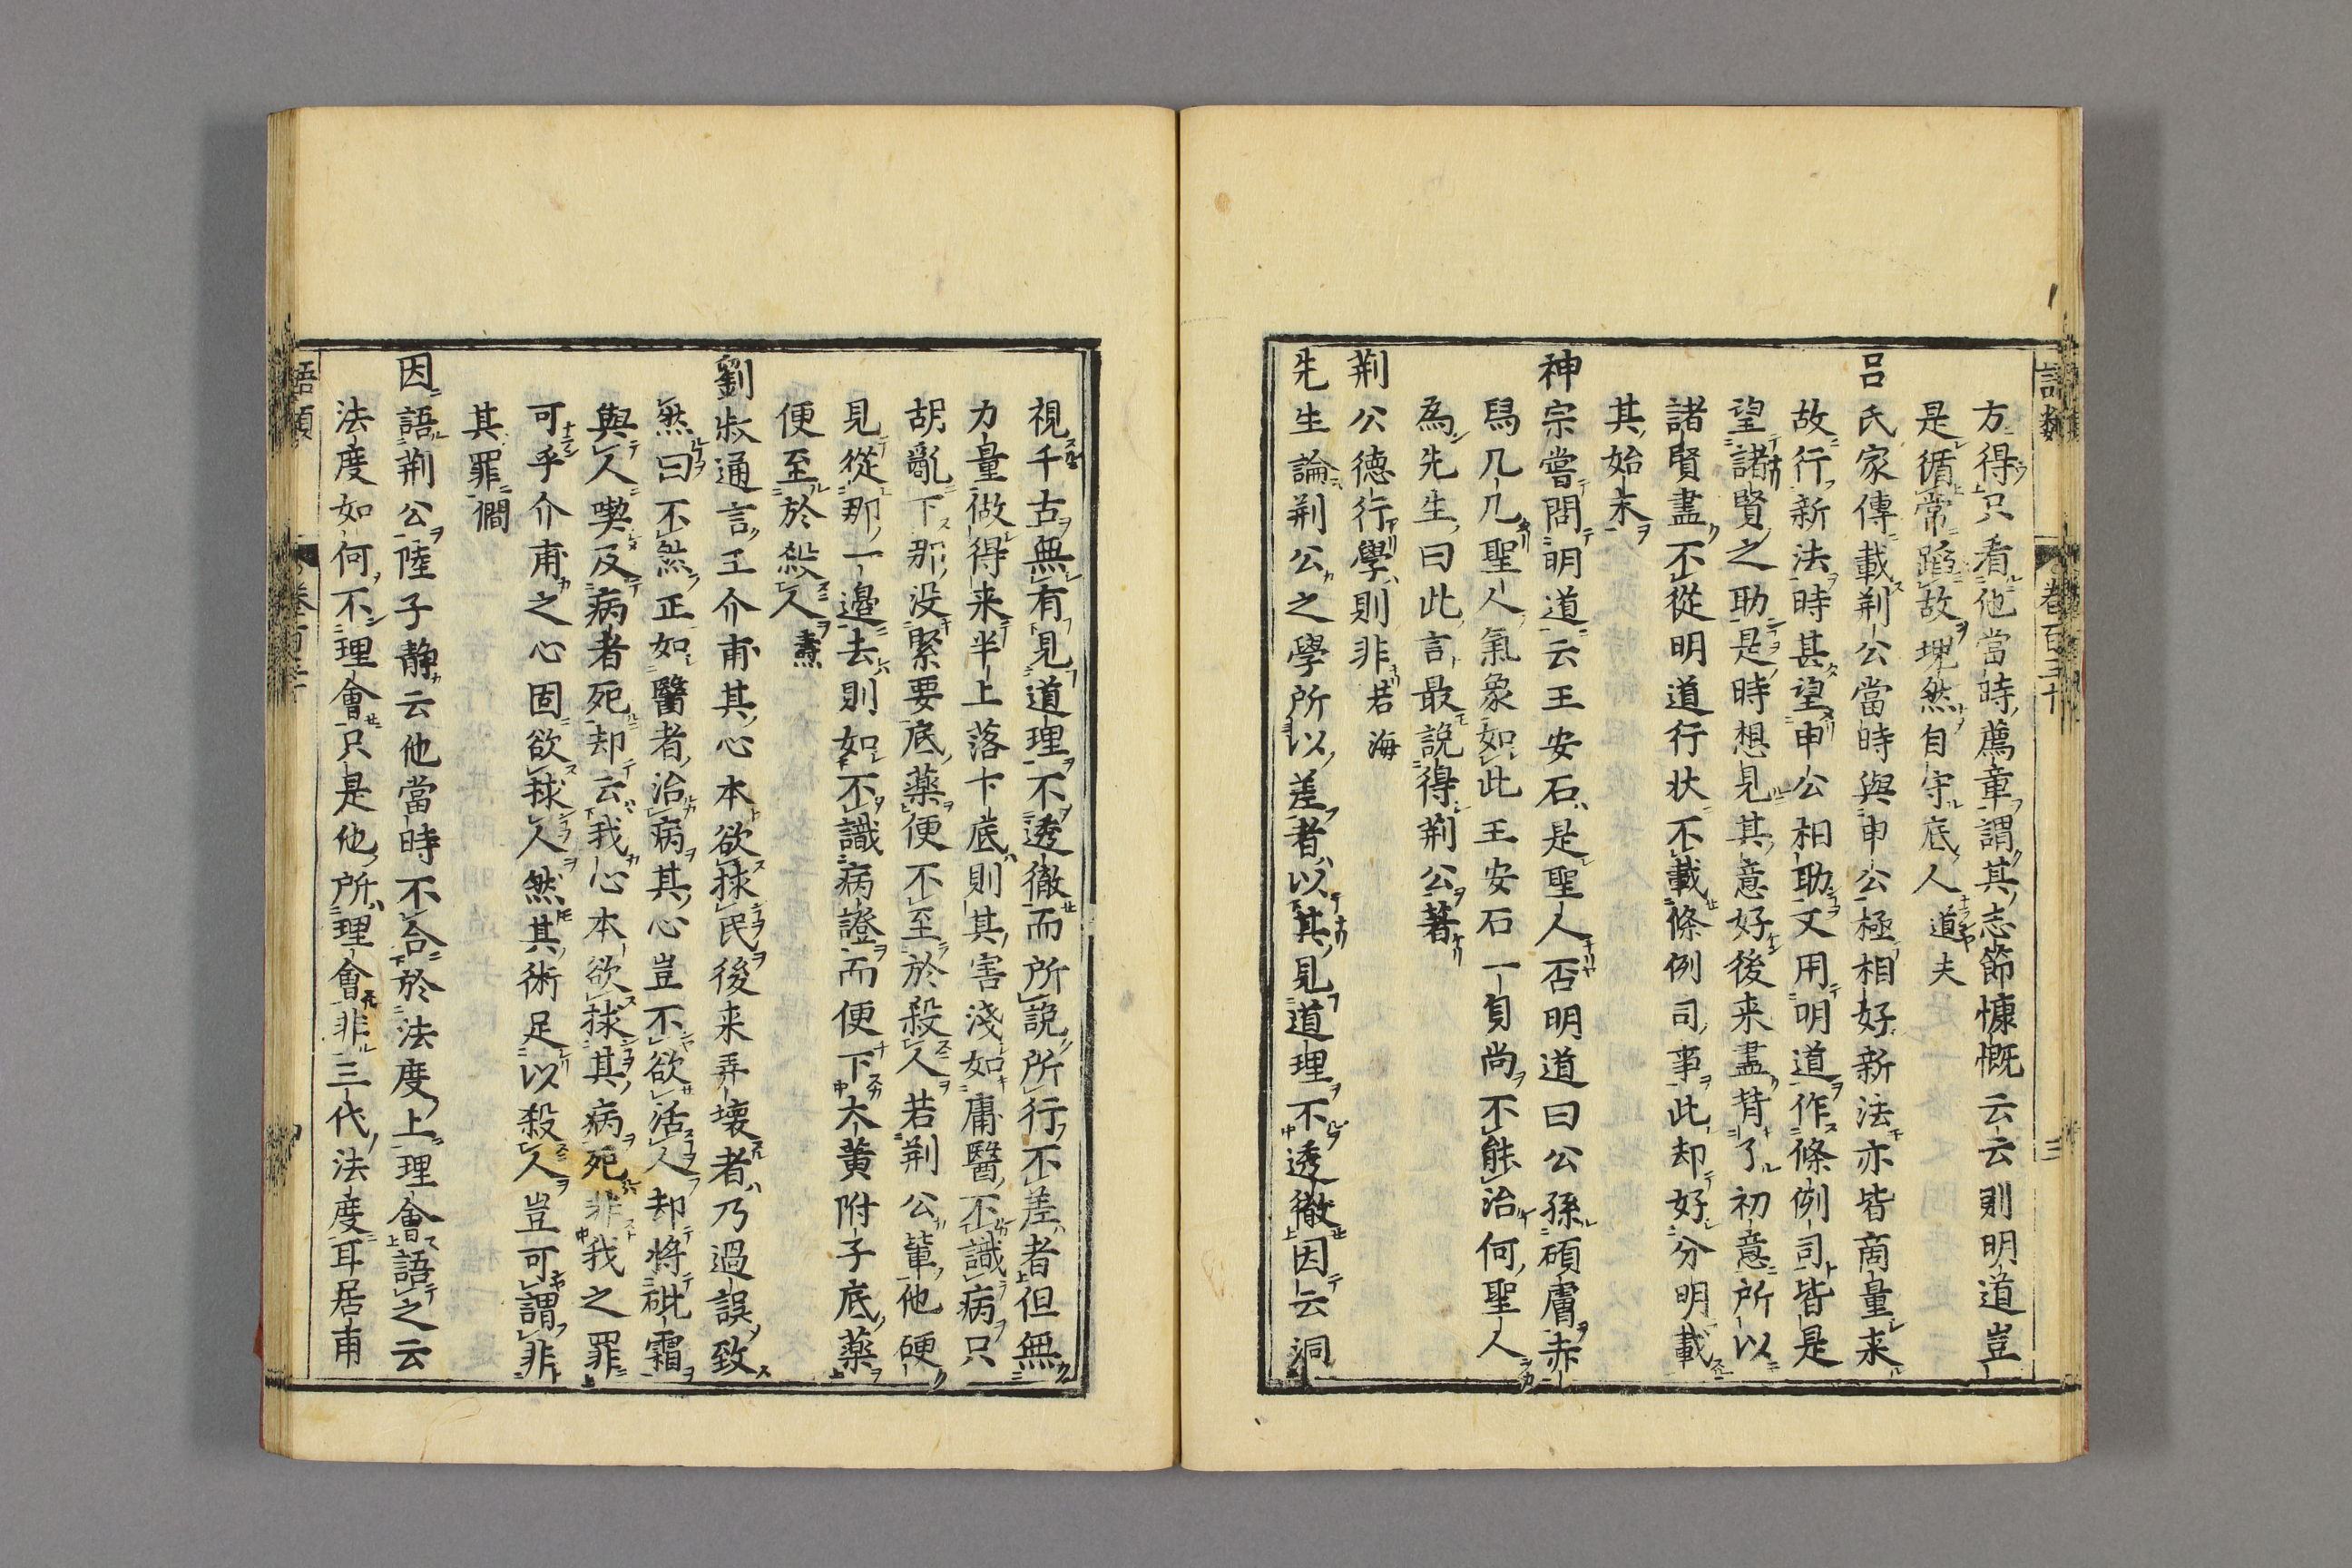 語類 卷百三十 三
方得只看他當時薦章謂其志節慷慨云云則明道豈
是循常蹈故塊然自守底人道夫
吕氏家傳載荆公當時與申公極相好新法亦皆商量来
故行新法時甚望申公相助又用明道作條例司皆是
望諸賢之助是時想見其意好後来盡背了初意所以
諸賢盡不從明道行状不載條例司事此却好分明載
其始末
神宗嘗問明道云王安石是聖人否明道曰公孫碩膚赤
舄几几聖人氣象如此王安石一身尚不能治何聖人
為先生曰此言最説得荆公著
荆公德行學則非若海
先生論荆公之學所以差者以其見道理不透徹因云洞
視千古無有見道理不透徹而所説所行不差者但無
力量做得来半上落下底則其害淺如庸醫不識病只
胡亂下那没緊要底薬便不至於殺人若荆公輩他硬
見從那一邉去則如不識病證而便下大黄附子底薬
便至於殺人燾
劉叔通言王介甫其心本欲捄民後来弄壊者乃過誤致
然曰不然正如醫者治病其心豈不欲活人却将砒霜
與人喫及病者死却云我心本欲捄其病死非我之罪
可乎介甫之心固欲捄人然其術足以殺人豈可謂非
其罪僩
因語荆公陸子静云他當時不合於法度上理會語之云
法度如何不理會只是他所理會非三代法度耳居甫
語類